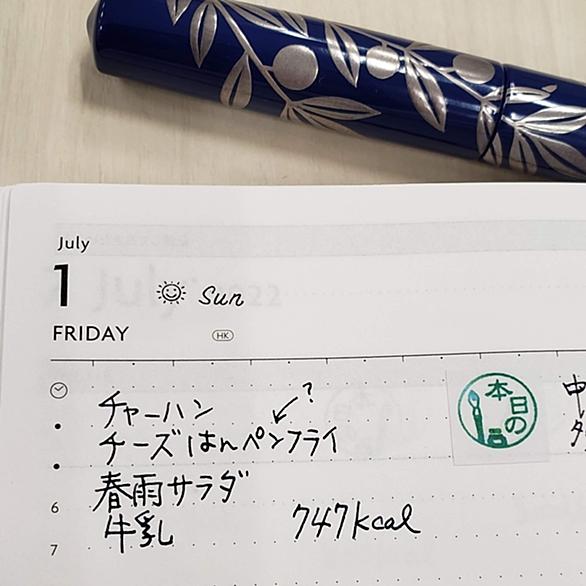 July
1
Sun
FRIDAY
HK
チャーハン
?
チーズはんペンフライ
春雨サラダ
牛乳
747kcal
本日の
中
6
7